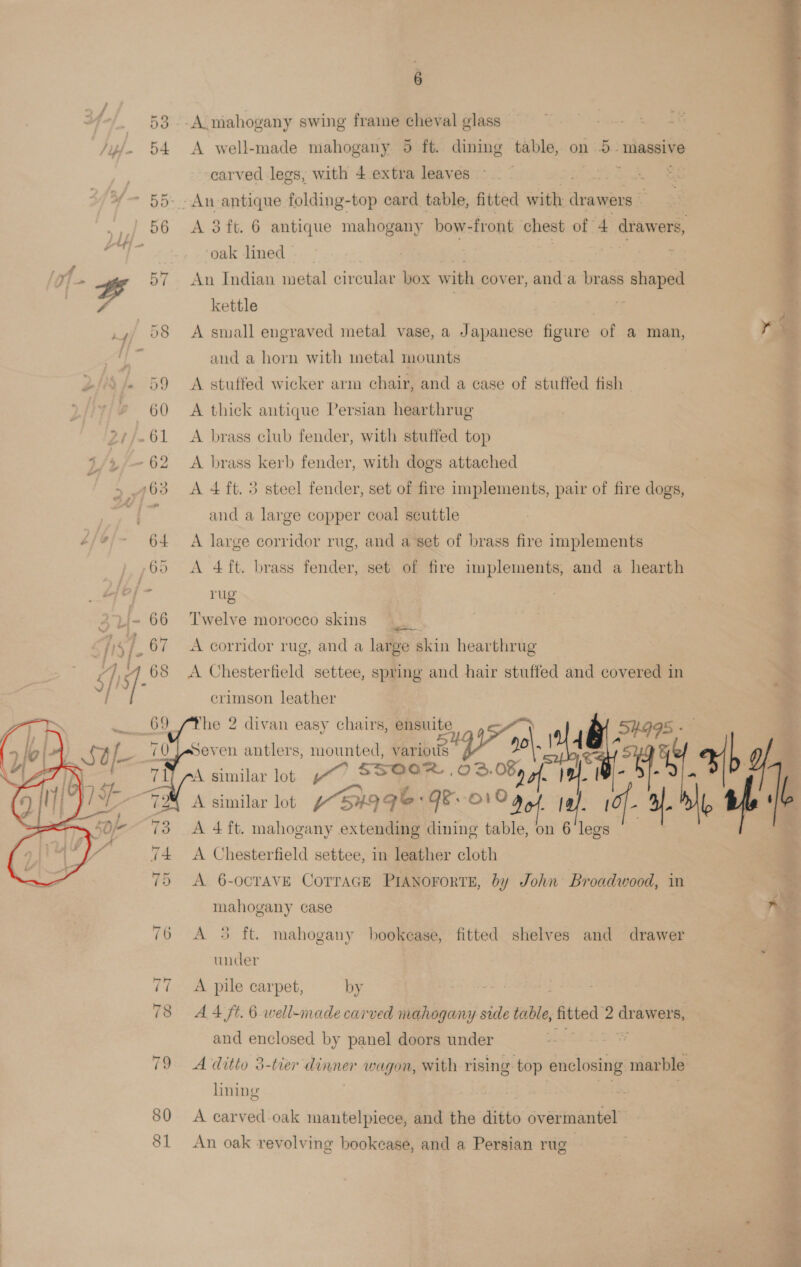 6
53 A mahogany swing frame cheval glass
54 A well-made mahogany 5 ft. dining table, on 5 massive
carved legs, with 4 extra leaves
55 An antique folding-top card table, fitted with drawers
56 A 3 ft. 6 antique mahogany bow-front chest of 4 drawers,
oak lined
57 An Indian metal circular box with cover, and a brass shaped
kettle
58 A small engraved metal vase, a Japanese figure of a man,
and a horn with metal mounts
59 A stuffed wicker arm chair, and a case of stuffed fish
60 A thick antique Persian hearthrug
61 A brass club fender, with stuffed top
62 A brass kerb fender, with dogs attached
63 A 4 ft. 3 steel fender, set of fire implements, pair of fire dogs,
and a large copper coal scuttle
64 A large corridor rug, and a set of brass fire implements
65 A 4 ft. brass fender, set of fire implements, and a hearth
rug
66 Twelve morocco skins
67 A corridor rug, and a large skin hearthrug
68 A Chesterfield settee, spring and hair stuffed and covered in
crimson leather
69 The 2 divan easy chairs, ensuite
70 Seven antlers, mounted, various
71 A similar lot
72 A similar lot
73 A 4 ft. mahogany extending dining table, on 6 legs
74 A Chesterfield settee, in leather cloth
75 A 6-OCTAVE COTTAGE PIANOFORTE, by John Broadwood, in
mahogany case
76 A 3 ft. mahogany bookcase, fitted shelves and drawer
under
77 A pile carpet, by
78 A 4 ft. 6 well-made carved mahogany side table, fitted 2 drawers,
and enclosed by panel doors under
79 A ditto 3-tier dinner wagon, with rising top enclosing marble
lining
80 A carved oak mantelpiece, and the ditto overmantel
81 An oak revolving bookcase, and a Persian rug